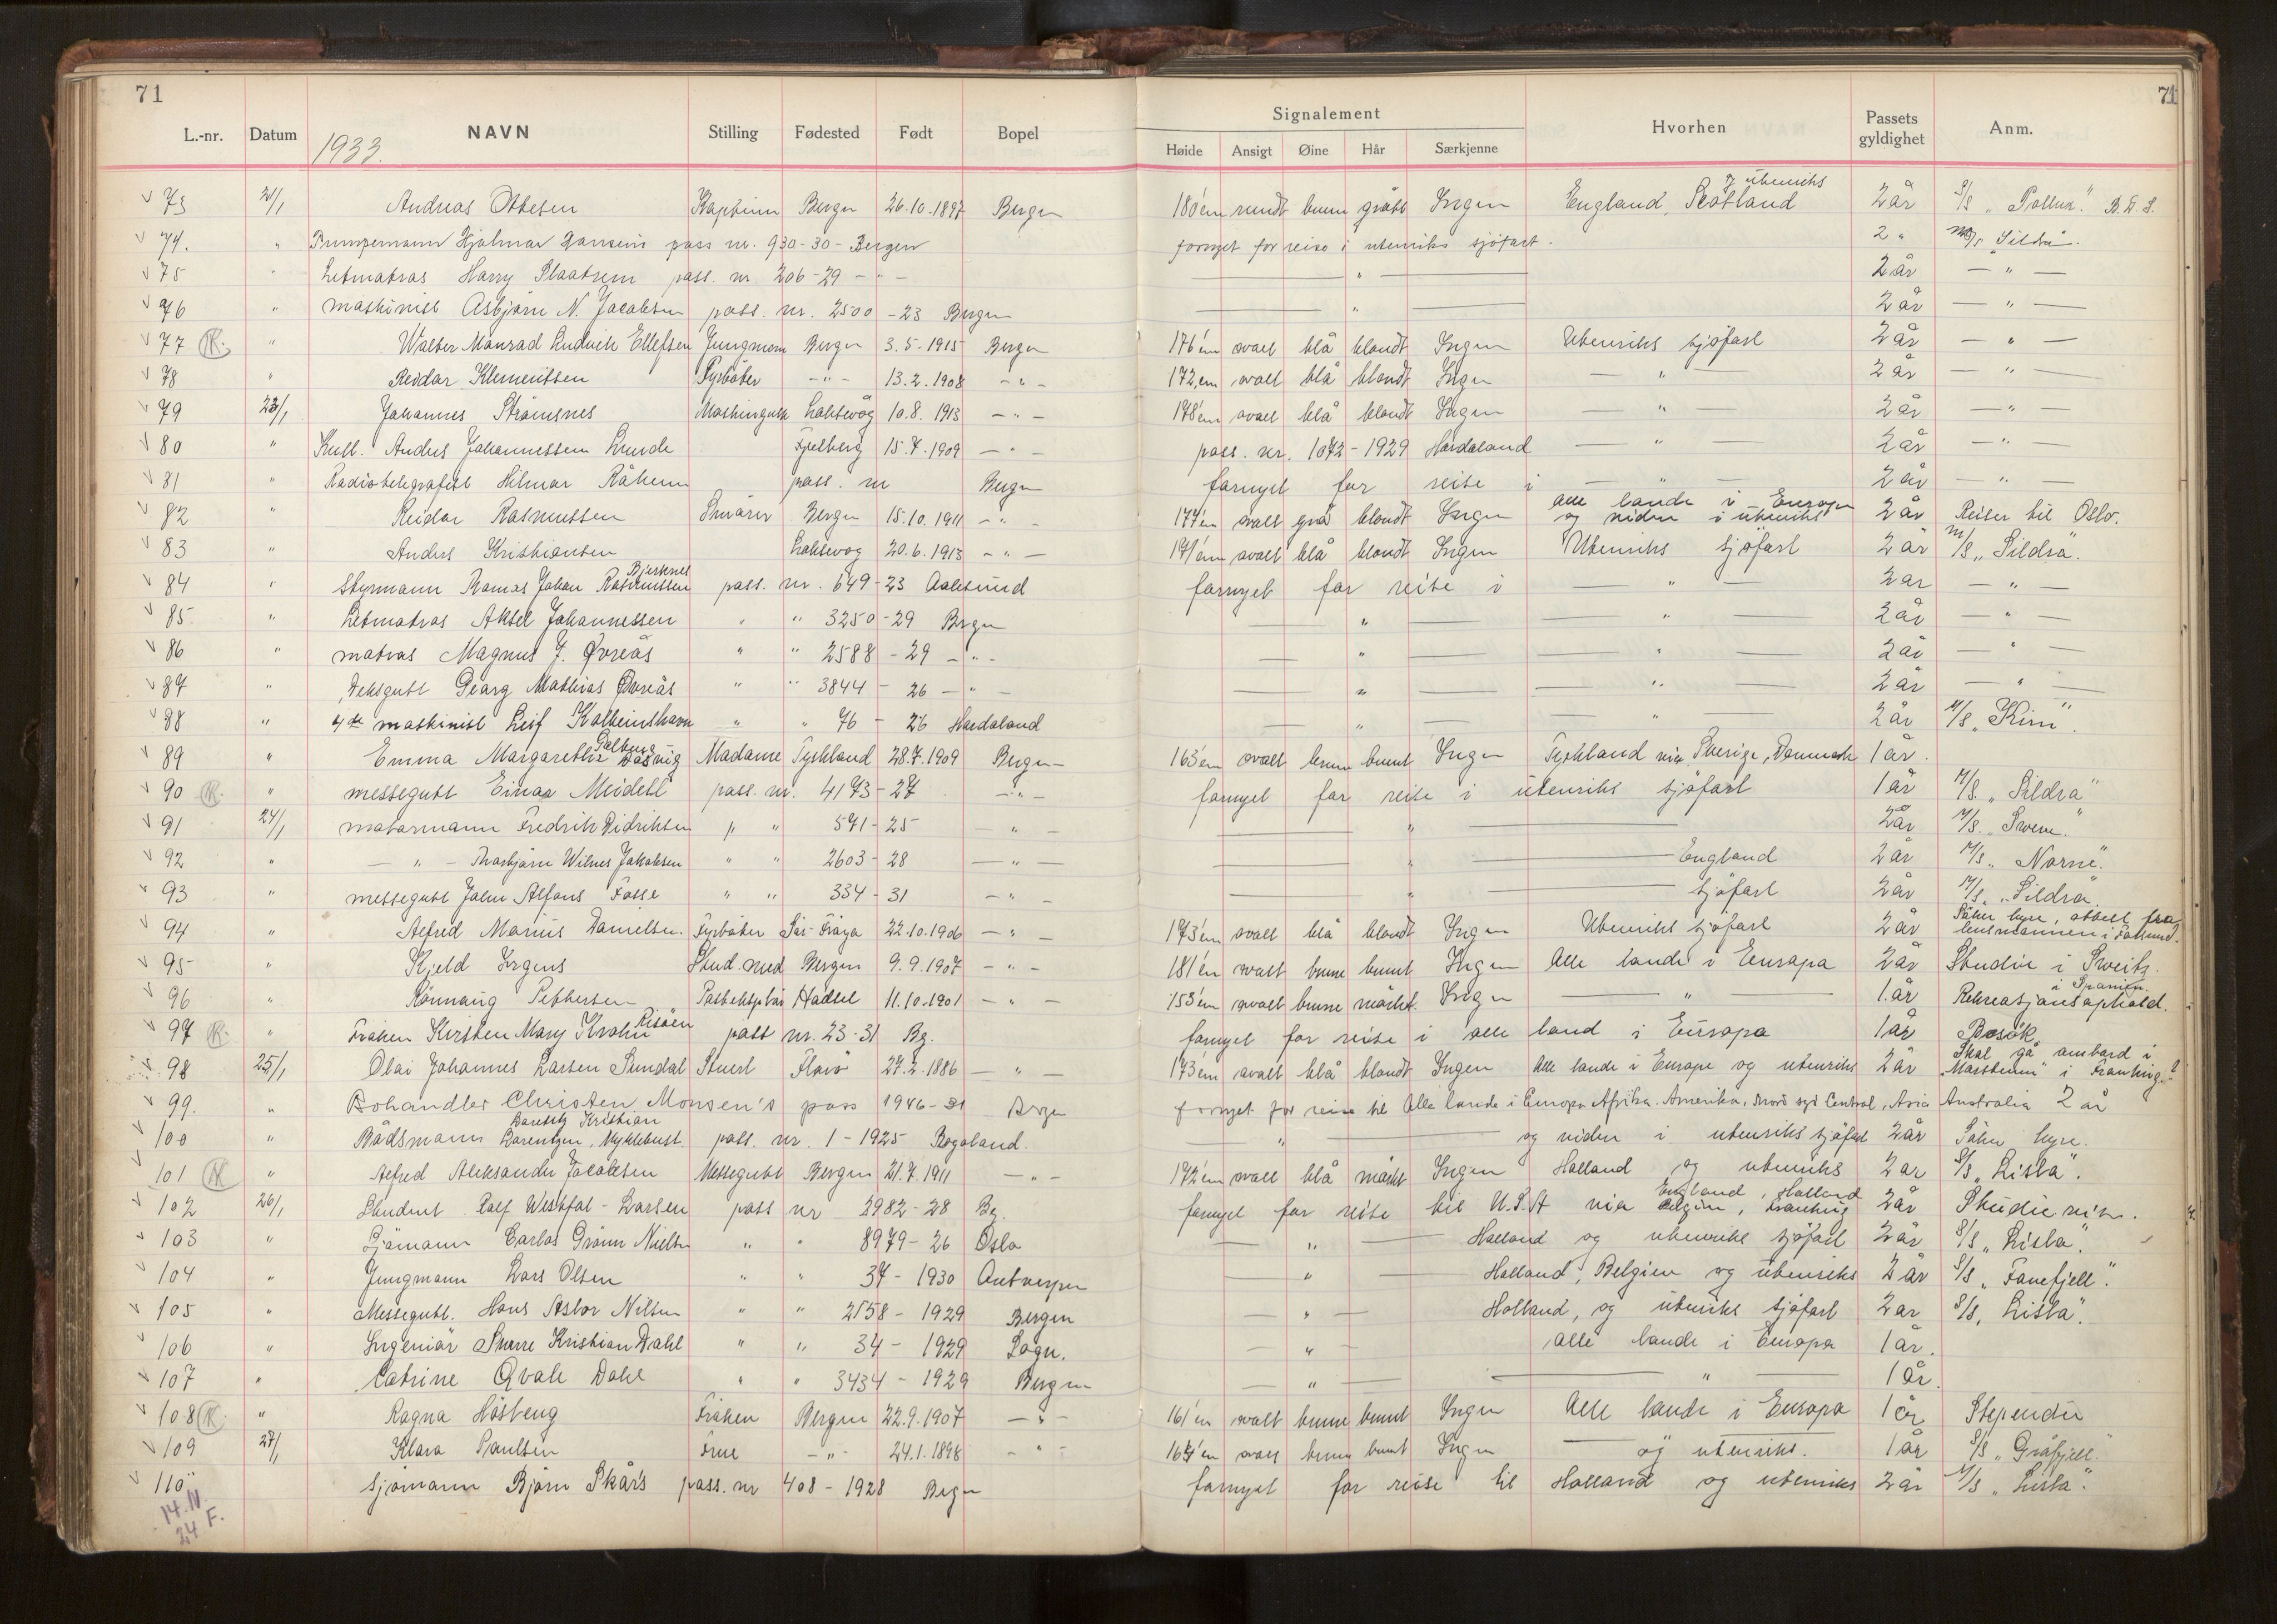 71
71
L.-nr. Datum NAVN Stilling Fødested Født Bopel Signalement Hvorhen Passets gyldighet Anm.
1933.
Høide Ansigt Øine Hår Særkjenne
73 21/1 Andreas Ottesen Kaptein Bergen 26.10.1897 Bergen 180 cm rundt brune grått Ingen England, Skotland utenriks 2 år S/s "Pollux". B.D.S.
74. " Pumpemann Hjalmar Hansens pass nr. 930-30- Bergen fornyet for reise i utenriks sjöfart. 2 " M/s "Sildra".
75 " Letmatros Harry pass. nr. 206-29 - " - — " — 2 år — " —
76 " maskinist Asbjörn N. Jacobsen pass. nr. 2500-23 Bergen — " — 2 år — " —
77 " Walter Monrad Ludvik Ellefsen Jungmann Bergen 3.5.1915 Bergen 176 cm ovalt blå blondt Ingen Utenriks sjöfart 2 år — " —
78 " Reidar Klementsen Fyrböter - " - 13.2.1908 - " - 172 cm ovalt blå blondt Ingen — " — 2 år — " —
79 23/1 Johannes Strömsnes Maskingutt Laksevåg 10.8.1913 - " - 178 cm ovalt blå blondt Ingen — " — 2 år — " —
80 " Kull. Anders Johannessen Lunde Fjelberg 15.7.1909 - " - pass. nr. 1072-1929 Hordaland — " — 2 år — " —
81 " Radiotelegrafist Hilmar pass. nr Bergen fornyet for reise i — " — 2 år — " —
82 " Reidar Rasmussen Bergen 15.10.1911 - " - 177 cm ovalt grå blondt Ingen Alle lande i Europa og viden i utenriks 2 år Reiser til Oslo.
83 " Anders Kristiansen Laksevåg 20.6.1913 - " - 171 cm ovalt blå blondt Ingen Utenriks sjöfart 2 år M/s "Sildra".
84 " Styrmann Tomas Johan Rasmussen Bjerknes pass. nr. 649-23 Aalesund fornyet for reise i — " — 2 år — " —
85 " Letmatros Aksel Johannessen " " 3250-29 Bergen — " — — " — 2 år — " —
86 " matros Magnus J. Øvreås " " 2588-29 - " - — " — — " — 2 år — " —
87 " Deksgutt Georg Mathias Øvreås " " 3844-26 - " - — " — — " — 2 år — " —
88 " 4de maskinist Leif " " 76-26 Hordaland — " — — " — 2 år M/s "Kim".
89 " Emma Margarethe Madame Tyskland 28.7.1909 Bergen 163 cm ovalt brune brunt Ingen Tyskland via Sverige, Danmark 1 år.
90 " messegutt Einar Meidell pass. nr. 4173-27 - " - fornyet for reise i utenriks sjöfart 1 år M/s "Sildra"
91 24/1 motormann Fredrik Didriksen " " 571-25 - " - — " — 2 år M/s.
92 " — " — Thorbjörn Wilnes Jakobsen " " 2603-28 — " — — " — England 2 år M/s "Norne".
93 " messegutt John Alfons Fosse " " 334-31 - " - — " — sjöfart 2 år M/s. "Sildra".
94 " Alfred Marius Danielsen. Fyrböter Sör-Fröya 22.10.1906 - " - 173 cm ovalt blå blondt Ingen Utenriks sjöfart 2 år Söker hyre, attest fra lensmannen i
95 " Kjeld Irgens Stud. med Bergen 9.9.1907 - " - 181 cm ovalt brune brunt Ingen Alle lande i Europa 2 år Studie i Sweitz.
96 " Rönnaug Pettersen Hadsel 11.10.1901 - " - 153 cm ovalt brune mörkt. Ingen — " — 1. år Rekreasjonsophold. i Spanien.
97 " Fröken Kirsten Mary Krohn Risöen pass nr. 23-31 Bg. fornyet for reise i alle land i Europa 1 år Besök
98 25/1 Olai Johannes Larsen Sundal Stuert Florö 27.2.1886 — " — 173 cm ovalt blå blondt Ingen Alle lande i Europa og utenriks 2 år Skal gå ombord i i Frankrig?
99. " Bohandler Christen Monsen's pass 1946-31 Bergen fornyet for reise til Alle lande i Europa Afrika. Amerika, nord syd Central, Asia Australia 2 år
100 " Bådsmann Lorentzen, Myklebust. Kristian pass. nr. 1-1925 Rogaland. — " — og viden i utenriks sjöfart 2 år Söker hyre.
101 " Alfred Aleksander Jacobsen Messegutt Bergen 21.7.1911 - " - 172 cm ovalt blå mörkt Ingen Holland og utenriks 2 år S/s "Lista".
102 26/1 Student. Rolf Westfal-Larsen pass nr 2982-28 Bg. fornyet for reise til U.S.A via England, Holland Belgien, Frankrig 2 år Studiereise.
103 " Sjömann Carlos Grönn Nielsen " " 8979-26 Oslo — " — Holland og utenriks sjöfart 2 år S/s "Lista".
104 " Jungmann Lars Olsen " " 37-1930 Antverpen — " — Holland, Belgien og utenriks 2 år S/s "Fanefjell".
105 " Messegutt. Hans Astor Nilsen " " 2158-1929 Bergen — " — Holland, og utenriks sjöfart 2 år S/s, Lista".
106 " Ingeniör Snorre Kristian Dahl " " 34-1929 Sogn. — " — Alle lande i Europa 1 år.
107 " Catrine Qvale Dahl " " 3434-1929 Bergen — " — — " — 1 år.
108 " Ragna Fröken Bergen 22.9.1907 - " - 161 cm ovalt brune brunt Ingen Alle lande i Europa 1 år Stipendie
109 27/1 Klara Paulsen Frue - " - 24.1.1898 - " - 164 cm ovalt brune brunt Ingen — og utenriks. 1 år S/s "Gråfjell".
110 sjömann Björn Skårs pass. nr 408-1928 Bergen fornyet for reise til Holland og utenriks 2 år M/s "Lista".
14. N.
24 F.